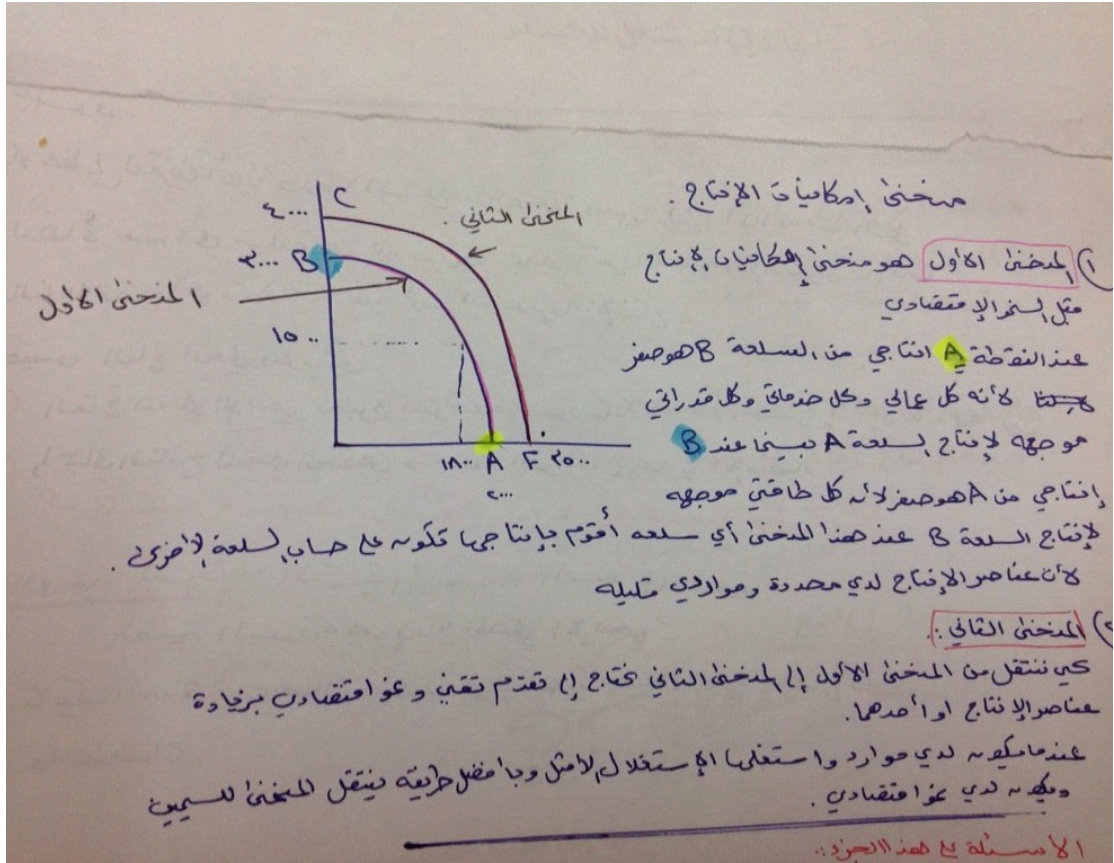 منحنى إمكانيات الإنتاج .
C
٤٠٠٠
المنحنى الثاني .
٣٠٠٠ B
المنحنى الأول
١٥٠٠
١٨٠٠ A F ٣٥٠٠
٢٠٠٠
١) المنحنى الأول هو منحنى إمكانيات الإنتاج
قبل النمو الإقتصادي
عند النقطة A انتاجي من السلعة B هو صفر
لأنه كل عمالي وكل خدماتي وكل قدراتي
موجهه لإنتاج السلعة A بينما عند B
إنتاجي من A هو صفر لأنه كل طاقتي موجهه
لإنتاج السلعة B عند هذا المنحنى أي سلعه أقوم بإنتاجها تكون على حساب السلعة الأخرى .
لأن عناصر الإنتاج لدي محددة ومواردي قليله
٢) المنحنى الثاني :.
كي ننتقل من المنحنى الأول إلى المنحنى الثاني نحتاج إلى تقدم تقني و نمو اقتصادي بزيادة
عناصر الإنتاج او أحدهما.
عندما يكون لدي موارد واستغلها الإستغلال الأمثل وبافضل طريقه ينتقل المنحنى لليمين
ويكون لدي نمو اقتصادي .
الأسئلة على هذا الجزء :.